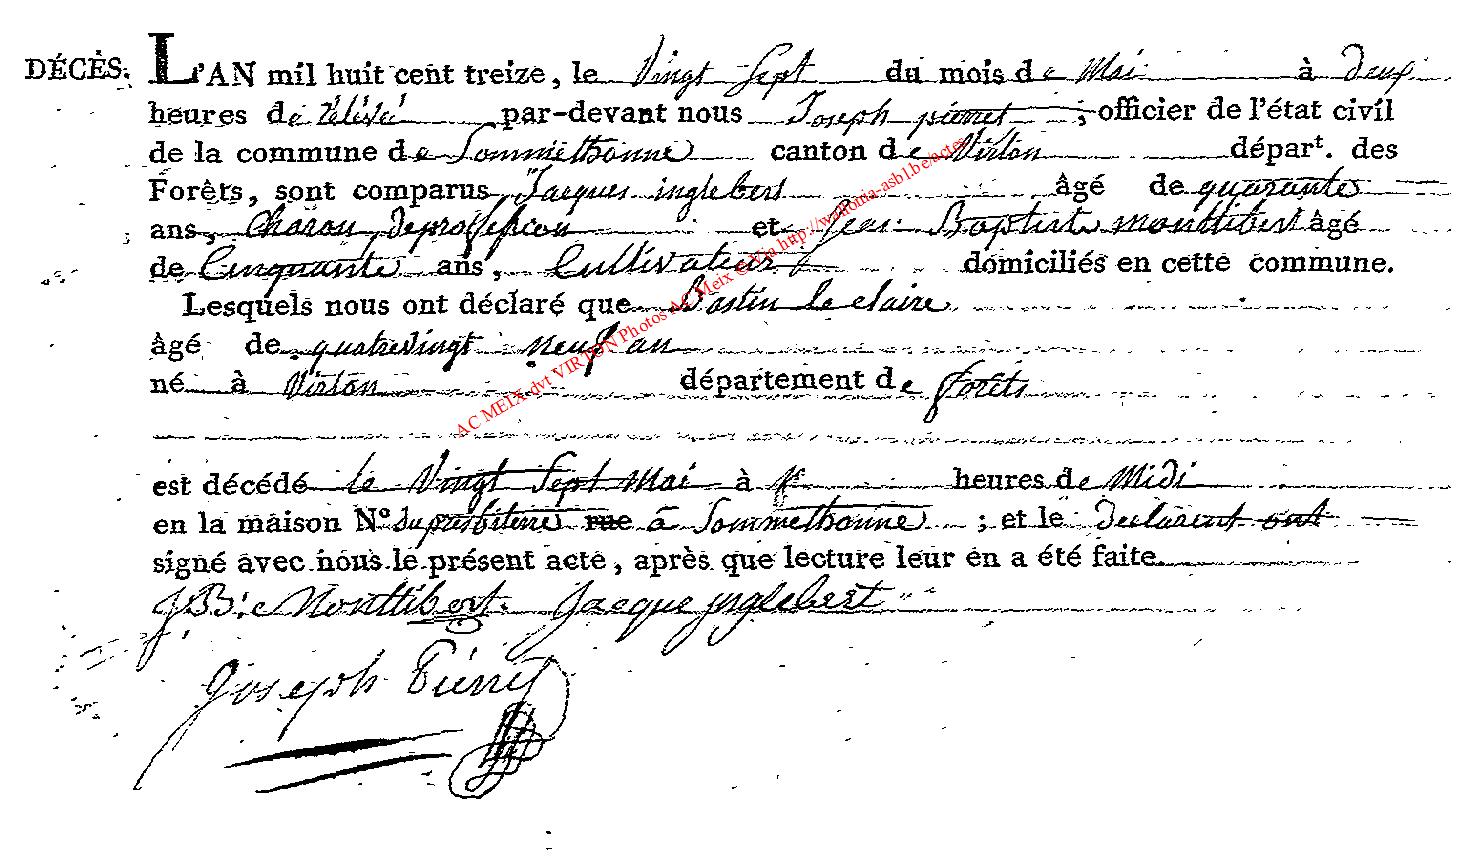 DÉCÈS. L'AN mil huit cent treize, le Vingt Sept du mois de Mai à deux
heures de rélévé par-devant nous Joseph pierret ; officier de l'état civil
de la commune de Sommethonne canton de Virton départ. des
Forêts, sont comparus Jacques inglebert âgé de quarante
ans, Charon de profession et Jean Baptiste monttibert âgé
de Cinquante ans, Cultivateur domiciliés en cette commune.
Lesquels nous ont déclaré que Bastin le claire
âgé de quatrevingt neuf an
né à Virton département de forêts
est décédé le Vingt Sept Mai à heures de Midi
en la maison N° du presbiterre rue à Sommethonne ; et le declarent ont
signé avec nous le présent acte, après que lecture leur en a été faite.
JBte Monttibert. Jacque jnglebert
Joseph Piérret
AC MEIX-dvt VIRTON Photos AC Meix © Via http://wallonia-asbl.be/actes